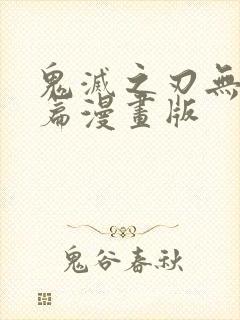 鬼滅之刃無
篇漫畫版
鬼谷春秋